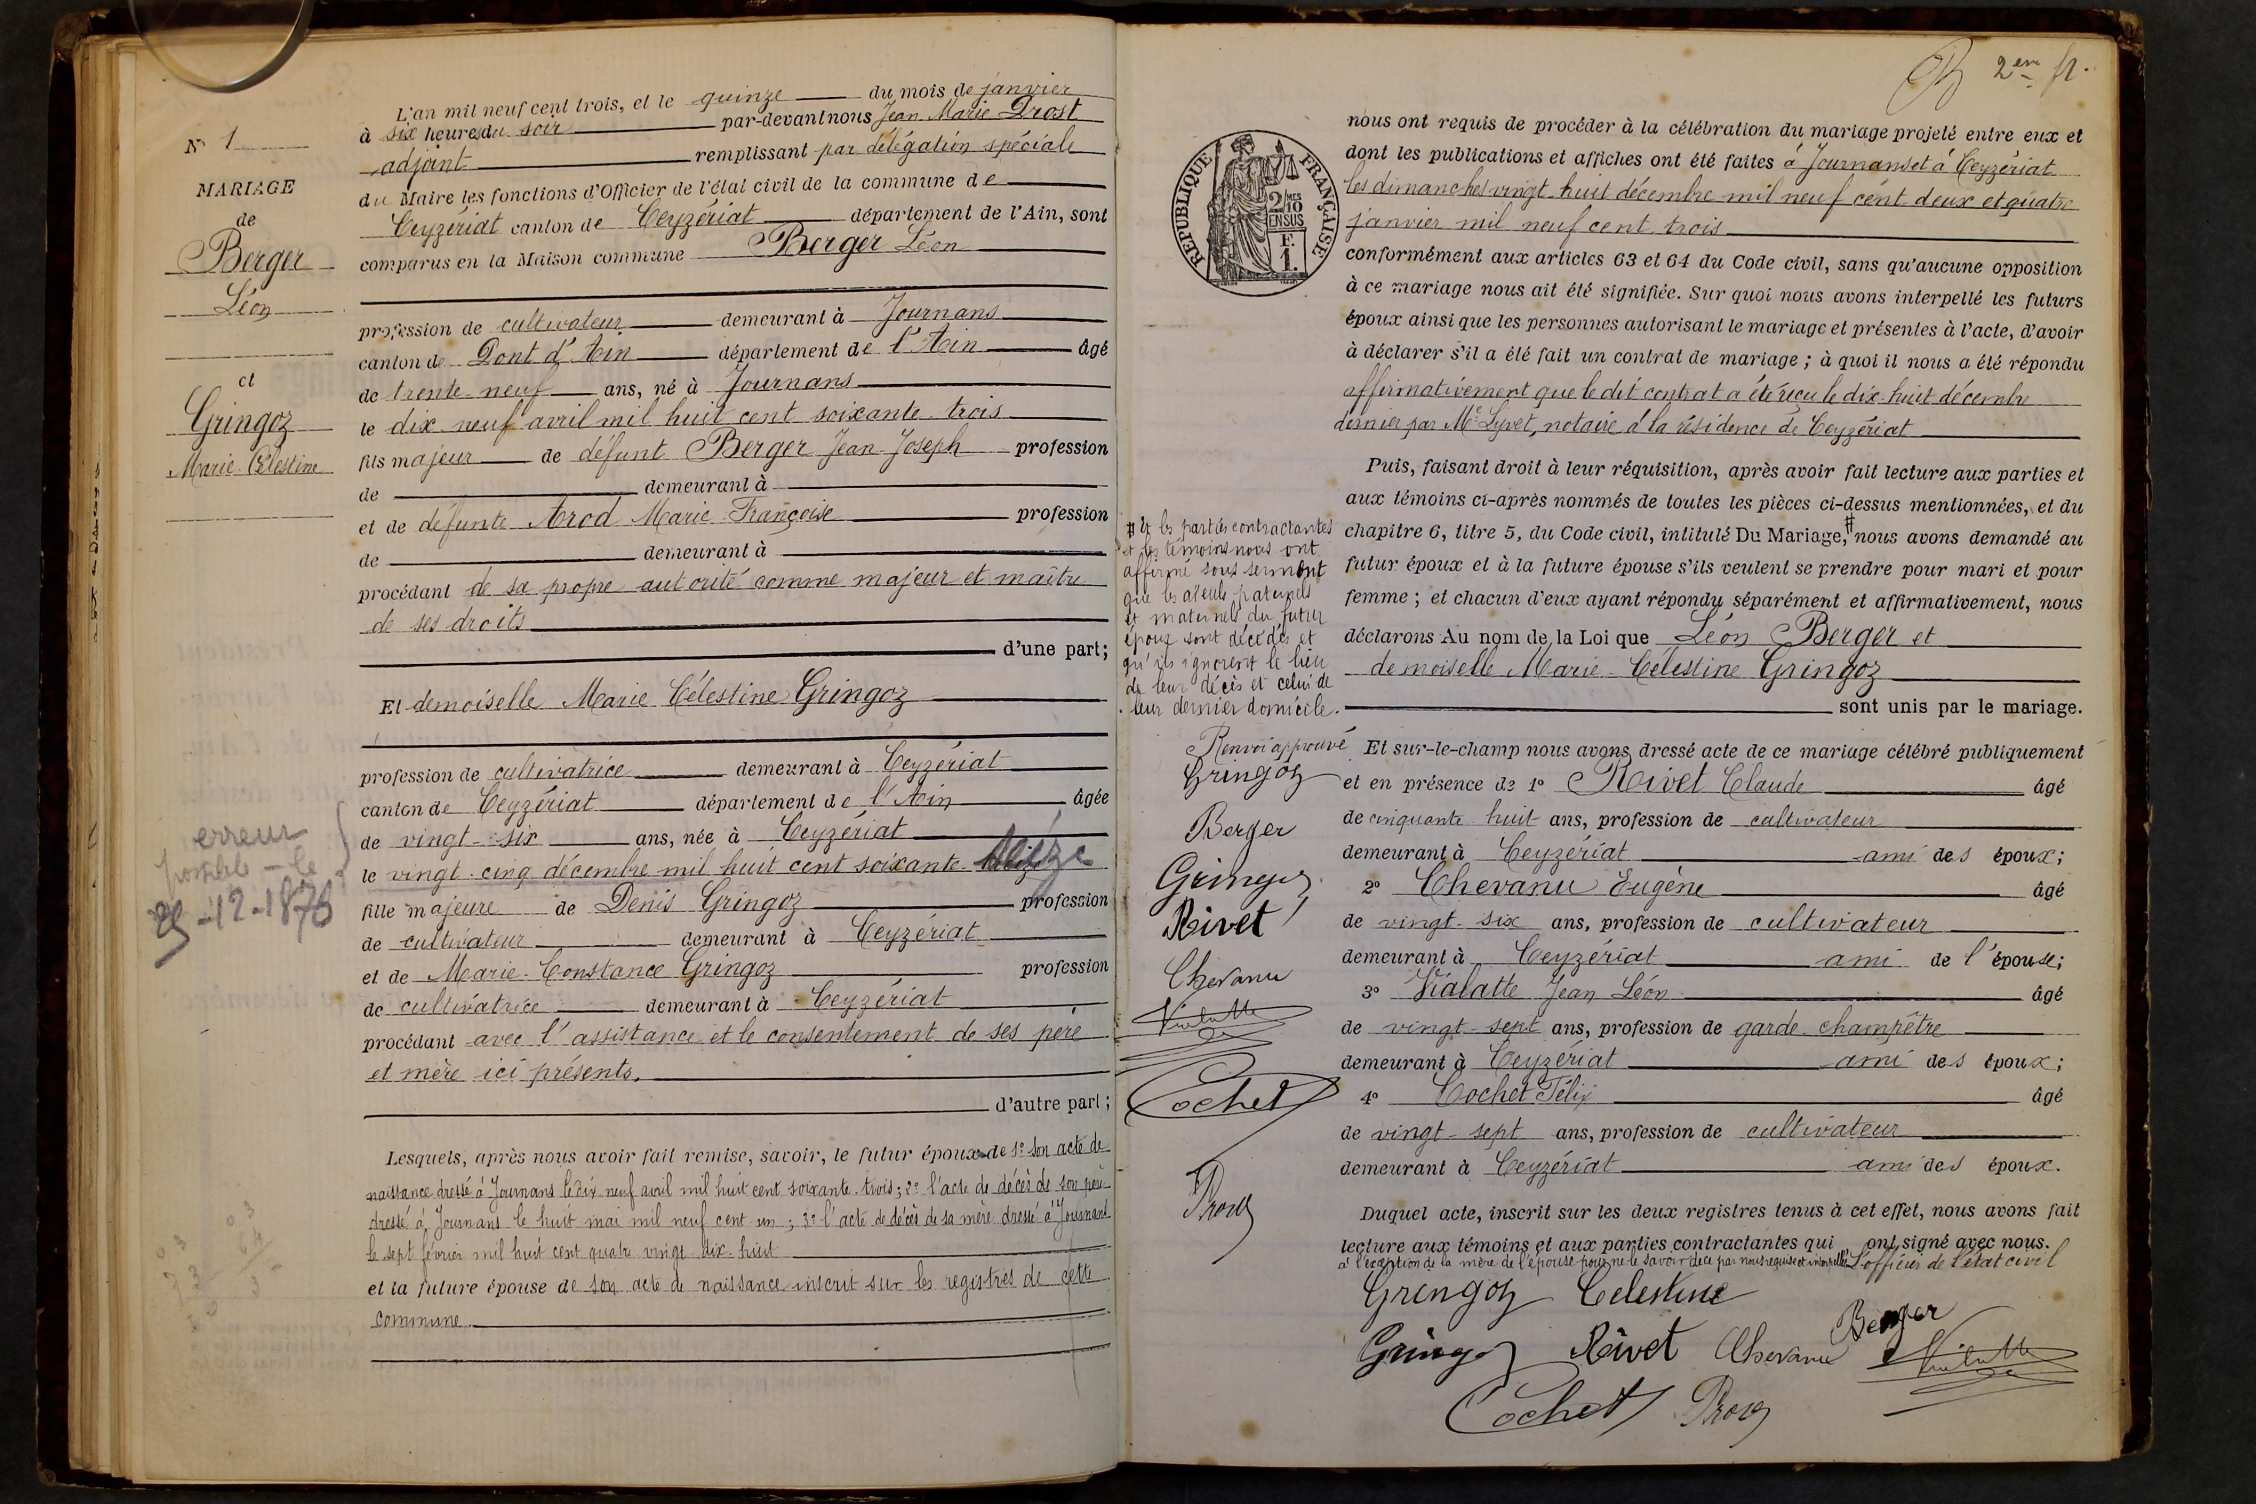 N° 1
MARIAGE
de
Berger
Léon
et
Gringoz
Marie Célestine
erreur
possible - le
25-12-1876
L'an mil neuf cent trois, et le quinze du mois de janvier
à six heures du soir par-devant nous Jean Marie Prost
adjoint remplissant par délégation spéciale
du Maire les fonctions d'Officier de l'état civil de la commune de
Ceyzériat canton de Ceyzériat département de l'Ain, sont
comparus en la Maison commune Berger Léon
profession de cultivateur demeurant à Journans
canton de Pont d'Ain département de l'Ain âgé
de trente-neuf ans, né à Journans
le dix neuf avril mil huit cent soixante-trois
fils majeur de défunt Berger Jean-Joseph profession
de demeurant à
et de défunte Arod Marie Françoise profession
de demeurant à
procédant de sa propre autorité comme majeur et maître
de ses droits
d'une part;
Et demoiselle Marie Célestine Gringoz
profession de cultivatrice demeurant à Ceyzériat
canton de Ceyzériat département de l'Ain âgée
de vingt-six ans, née à Ceyzériat
le vingt-cinq décembre mil huit cent soixante-seize
fille majeure de Denis Gringoz profession
de cultivateur demeurant à Ceyzériat
et de Marie-Constance Gringoz profession
de cultivatrice demeurant à Ceyzériat
procédant avec l'assistance et le consentement de ses père
et mère ici présents.
d'autre part;
Lesquels, après nous avoir fait remise, savoir, le futur époux de 1° son acte de
naissance dressé à Journans le dix neuf avril mil huit cent soixante-trois; 2° l'acte de décès de son père
dressé à Journans le huit mai mil neuf cent un; 3° l'acte de décès de sa mère dressé à Journans
le sept février mil huit cent quatre vingt dix-huit
et la future épouse de son acte de naissance inscrit sur les registres de cette
commune
2em
RÉPUBLIQUE FRANÇAISE
2/10 MES
EN SUS
F.
1.
nous ont requis de procéder à la célébration du mariage projeté entre eux et
dont les publications et affiches ont été faites à Journans et à Ceyzériat
les dimanches vingt-huit décembre mil neuf cent deux et quatre
janvier mil neuf cent trois
conformément aux articles 63 et 64 du Code civil, sans qu'aucune opposition
à ce mariage nous ait été signifiée. Sur quoi nous avons interpellé les futurs
époux ainsi que les personnes autorisant le mariage et présentes à l'acte, d'avoir
à déclarer s'il a été fait un contrat de mariage; à quoi il nous a été répondu
affirmativement que le dit contrat a été reçu le dix-huit décembre
dernier par Me Lyvet, notaire à la résidence de Ceyzériat
Puis, faisant droit à leur réquisition, après avoir fait lecture aux parties et
aux témoins ci-après nommés de toutes les pièces ci-dessus mentionnées, et du
chapitre 6, titre 5, du Code civil, intitulé Du Mariage, # nous avons demandé au
futur époux et à la future épouse s'ils veulent se prendre pour mari et pour
femme; et chacun d'eux ayant répondu séparément et affirmativement, nous
déclarons Au nom de la Loi que Léon Berger et
demoiselle Marie-Célestine Gringoz
sont unis par le mariage.
# et les parties contractantes
et les témoins nous ont
affirmé sous serment
que les aïeuls paternels
et maternels du futur
époux sont décédés et
qu'ils ignorent le lieu
de leur décès et celui de
leur dernier domicile.
Renvoi approuvé
Gringoz
Berger
Gringoz
Rivet
Chevanu
Vialatte
Cochet
Prost
Et sur-le-champ nous avons dressé acte de ce mariage célébré publiquement
et en présence de 1° Rivet Claude âgé
de cinquante huit ans, profession de cultivateur
demeurant à Ceyzériat ami des époux;
2° Chevanu Eugène âgé
de vingt-six ans, profession de cultivateur
demeurant à Ceyzériat ami de l'épouse;
3° Vialatte Jean Léon âgé
de vingt-sept ans, profession de garde-champêtre
demeurant à Ceyzériat ami des époux;
4° Cochet Félix âgé
de vingt-sept ans, profession de cultivateur
demeurant à Ceyzériat ami des époux.
Duquel acte, inscrit sur les deux registres tenus à cet effet, nous avons fait
lecture aux témoins et aux parties contractantes qui ont signé avec nous.
à l'exception de la mère de l'épouse pour ne le savoir de ce par nous requise et interpellée L'officier de l'état civil
Gringoz Célestine
Berger
Gringoz Rivet Chevanu Vialatte
Cochet Prost